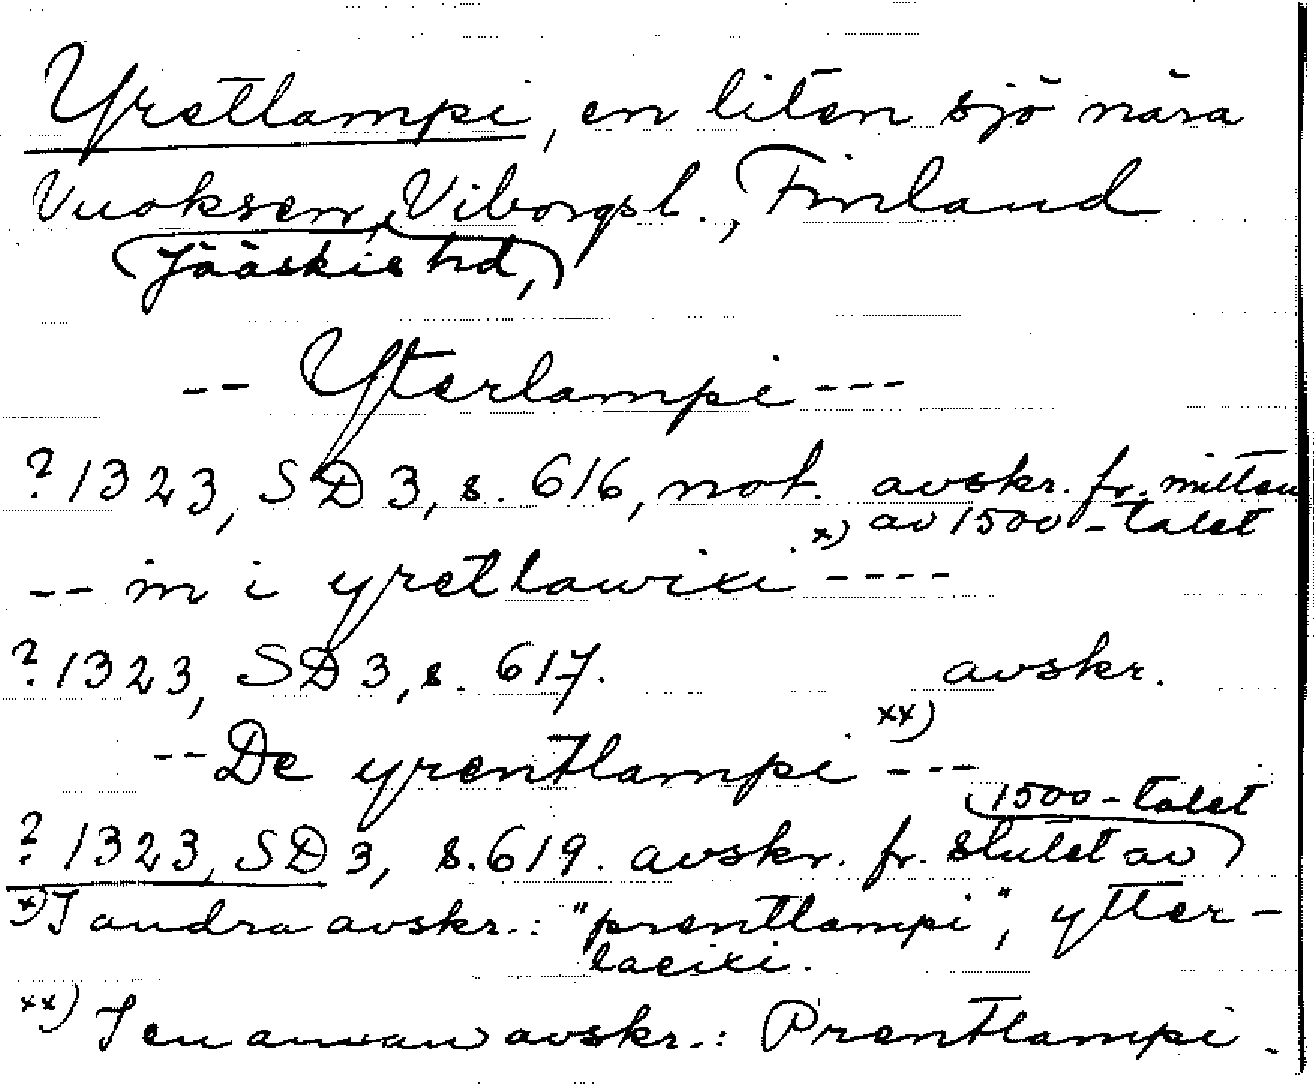 Yretlampi, en liten sjö nära
Vuoksen, Viborgsl., Finland
(Jääskis hd,)
-- Yterlampi ---
? 1323, SD 3, s. 616, not. avskr. fr. mitten
av 1500-talet
-- in i yretlawixi x) ----
? 1323, SD 3, s. 617. avskr.
-- De yrentlampi xx) ---
1500-talet
? 1323, SD 3, s. 619. avskr. fr. slutet av
x) I andra avskr.: "prentlampi", ytter-
laeixi.
xx) I en annan avskr.: Prentlampi.